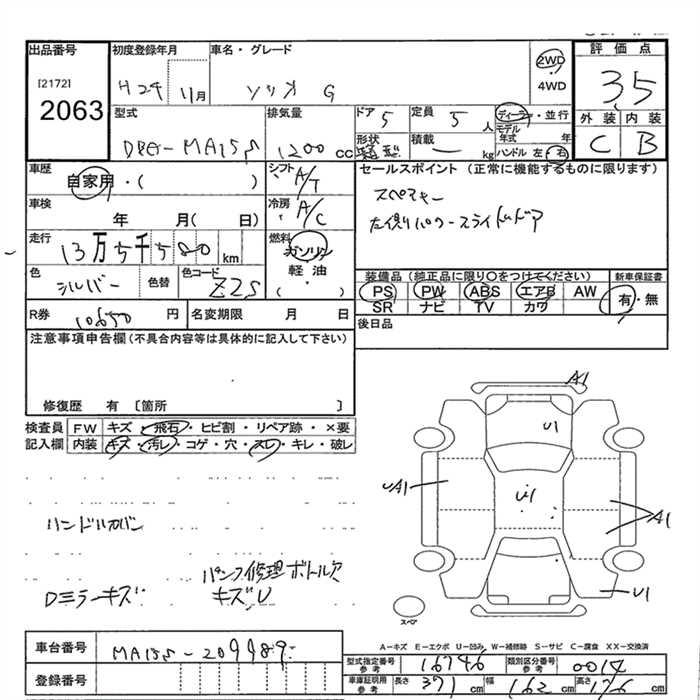 出品番号 初度登録年月 車名・グレード 評価点
[2172] H24 11月 ソリオ G 2WD 4WD 3.5
2063
型式 排気量 ドア 5 定員 5 人 ディーラー・並行 外装 内装
DBA-MA15S 1200 cc 形状 積載 ー kg モデル年式 年 C B
ハンドル 左・右
車歴 自家用・( ) シフト A/T セールスポイント (正常に機能するものに限ります)
車検 年 月( 日) 冷房 A/C スペアキー
左側パワースライドドア
走行 13万5千580 km 燃料 ガソリン
軽油
( )
色 シルバー 色替 色コード Z2S
装備品 (純正品に限り○をつけてください) 新車保証書
PS PW ABS エアB AW 有・無
SR ナビ TV カワ
R券 10650 円 名変期限 月 日 後日品
注意事項申告欄(不具合内容等は具体的に記入して下さい)
修復歴 有 [箇所 ]
検査員 FW キズ・飛石・ヒビ割・リペア跡・×要
記入欄 内装 キズ・汚レ・コゲ・穴・スレ・キレ・破レ
A1
U1
UA1 U1 A1
U1
ハンドルカバー
パンク修理ボトル欠
Dミラーキズ キズU
スペア
A-キズ E-エクボ U-凹み W-補修跡 S-サビ C-腐食 XX-交換済
車台番号 MA15S-209989
型式指定番号 参考 16746 類別区分番号 参考 0014
登録番号
車庫証明用 参考 長さ 371 cm 幅 162 cm 高さ 176 cm